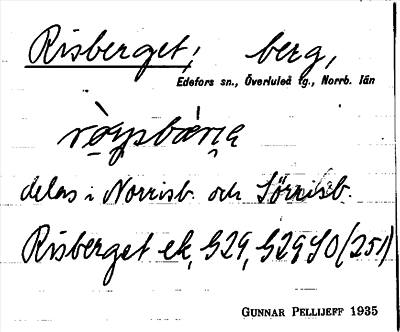 Risberget; berg,
Edefors sn., Överluleå tg., Norrb. län
delas i Norrisb. och Sörrisb.
Risberget ek, G29, G29SO (251)
GUNNAR PELLIJEFF 1935